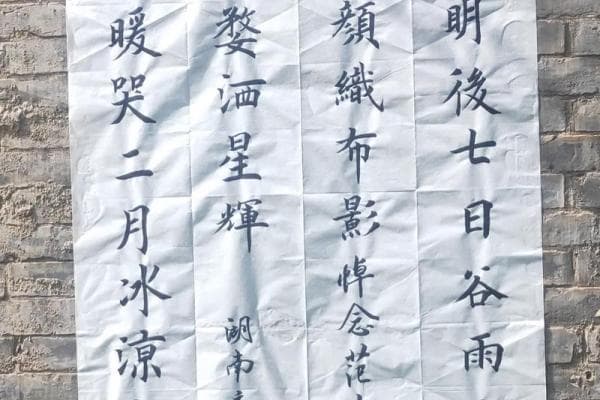 明後七日谷雨
顏織布影悼念范
婺洒星輝 湖南
暖哭二月冰涼